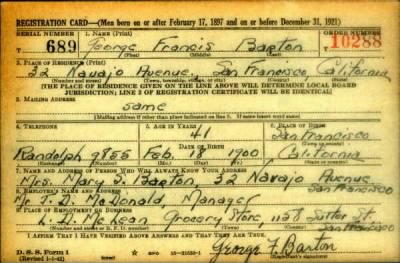 REGISTRATION CARD—(Men born on or after February 17, 1897 and on or before December 31, 1921)
SERIAL NUMBER 1. NAME (Print) ORDER NUMBER
689 George Francis Barton 10288
(First) (Middle) (Last)
3. PLACE OF RESIDENCE (Print)
32 Navajo Avenue, San Francisco California
(Number and street) (Town, township, village, or city) (County) (State)
[THE PLACE OF RESIDENCE GIVEN ON THE LINE ABOVE WILL DETERMINE LOCAL BOARD
JURISDICTION; LINE 2 OF REGISTRATION CERTIFICATE WILL BE IDENTICAL]
3. MAILING ADDRESS
same
[Mailing address if other than place indicated on line 2. If same insert word same]
4. TELEPHONE 5. AGE IN YEARS 6. PLACE OF BIRTH
41 San Francisco
(Town or county)
Randolph 9855 Feb. 1900 California
(Exchange) (Number) (Mo.) (Day) (Yr.) (State or country)
7. NAME AND ADDRESS OF PERSON WHO WILL ALWAYS KNOW YOUR ADDRESS
Mrs. Mary Barton, 32 Navajo Avenue
San Francisco
8. EMPLOYER'S NAME AND ADDRESS
Mr. J. D. McDonald, Manager
9. PLACE OF EMPLOYMENT OR BUSINESS
L. D. McLean Grocery Store, 1158 Sutter St.
San Francisco
(Number and street or R. F. D. number) (Town) (County) (State)
I AFFIRM THAT I HAVE VERIFIED ABOVE ANSWERS AND THAT THEY ARE TRUE.
D. S. S. Form 1 George F. Barton
(Revised 1-1-42) GPO 16—21630-1 (Registrant's signature)